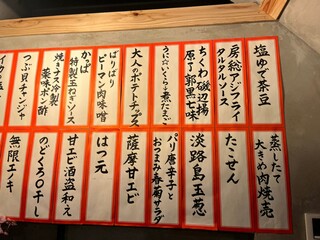 塩ゆで茶豆
房総アジフライ
タルタルソース
ちくわ磯辺揚
原了郭黒七味
うに☆いくら煮たまご
大人のポテトチップス
ぱりぱり
ピーマン肉味噌
かつば
特製玉ねぎソース
焼きナス冷製
薬味ポン酢
つぶ貝チャンジャ
蒸したて
大きめ肉焼売
たこせん
淡路島玉葱
パリ唐辛子と
おつまみ春菊サラダ
薩摩甘エビ
はつ元
甘エビ酒盗和え
のどくろ〇干し
無限エノキ